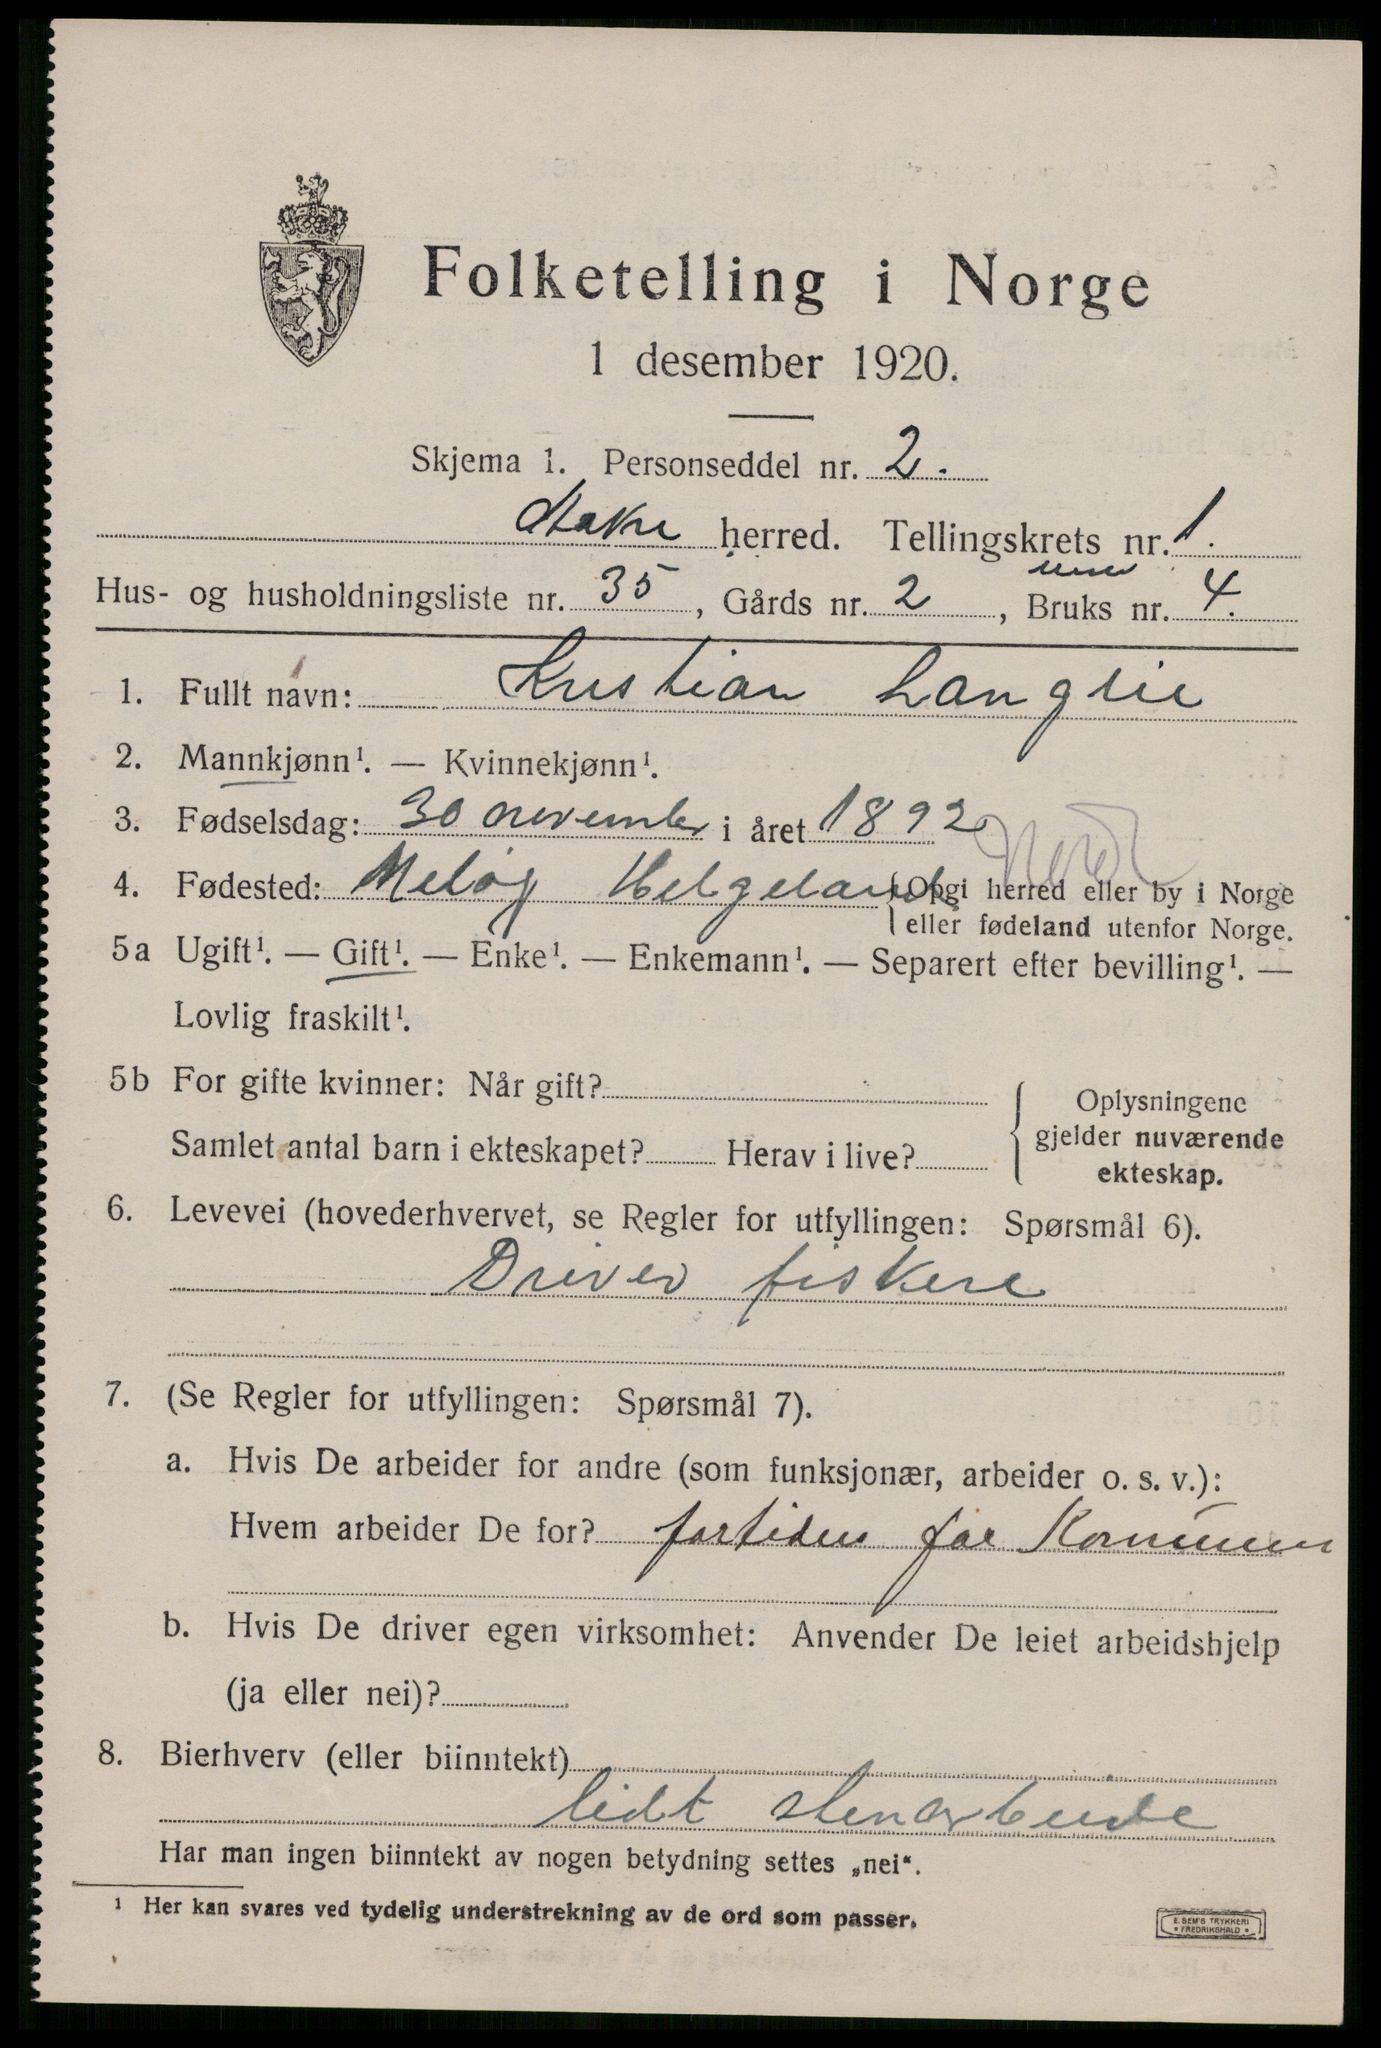 Folketelling i Norge
1 desember 1920.
Skjema 1. Personseddel nr. 2.
herred. Tellingskrets nr. 1.
Hus- og husholdningsliste nr. 35, Gårds nr. 2, Bruks nr. 4.
1. Fullt navn: Kristian Langlie
2. Mannkjønn¹. — Kvinnekjønn¹.
3. Fødselsdag: 30 november i året 1892
Nordl
4. Fødested: Meløy Helgeland (Opgi herred eller by i Norge
eller fødeland utenfor Norge.
5a Ugift¹. — Gift¹. — Enke¹. — Enkemann¹. — Separert efter bevilling¹. —
Lovlig fraskilt¹.
5b For gifte kvinner: Når gift?
Samlet antal barn i ekteskapet? Herav i live?
Oplysningene
gjelder nuværende
ekteskap.
6. Levevei (hovederhvervet, se Regler for utfyllingen: Spørsmål 6).
Driver fiskere
7. (Se Regler for utfyllingen: Spørsmål 7).
a. Hvis De arbeider for andre (som funksjonær, arbeider o. s. v.):
Hvem arbeider De for? fortiden for Kommunen
b. Hvis De driver egen virksomhet: Anvender De leiet arbeidshjelp
(ja eller nei)?
8. Bierhverv (eller biinntekt)
lidt stenarbeide
Har man ingen biinntekt av nogen betydning settes „nei“.
¹ Her kan svares ved tydelig understrekning av de ord som passer.
E. SEM'S TRYKKERI
FREDRIKSHALD